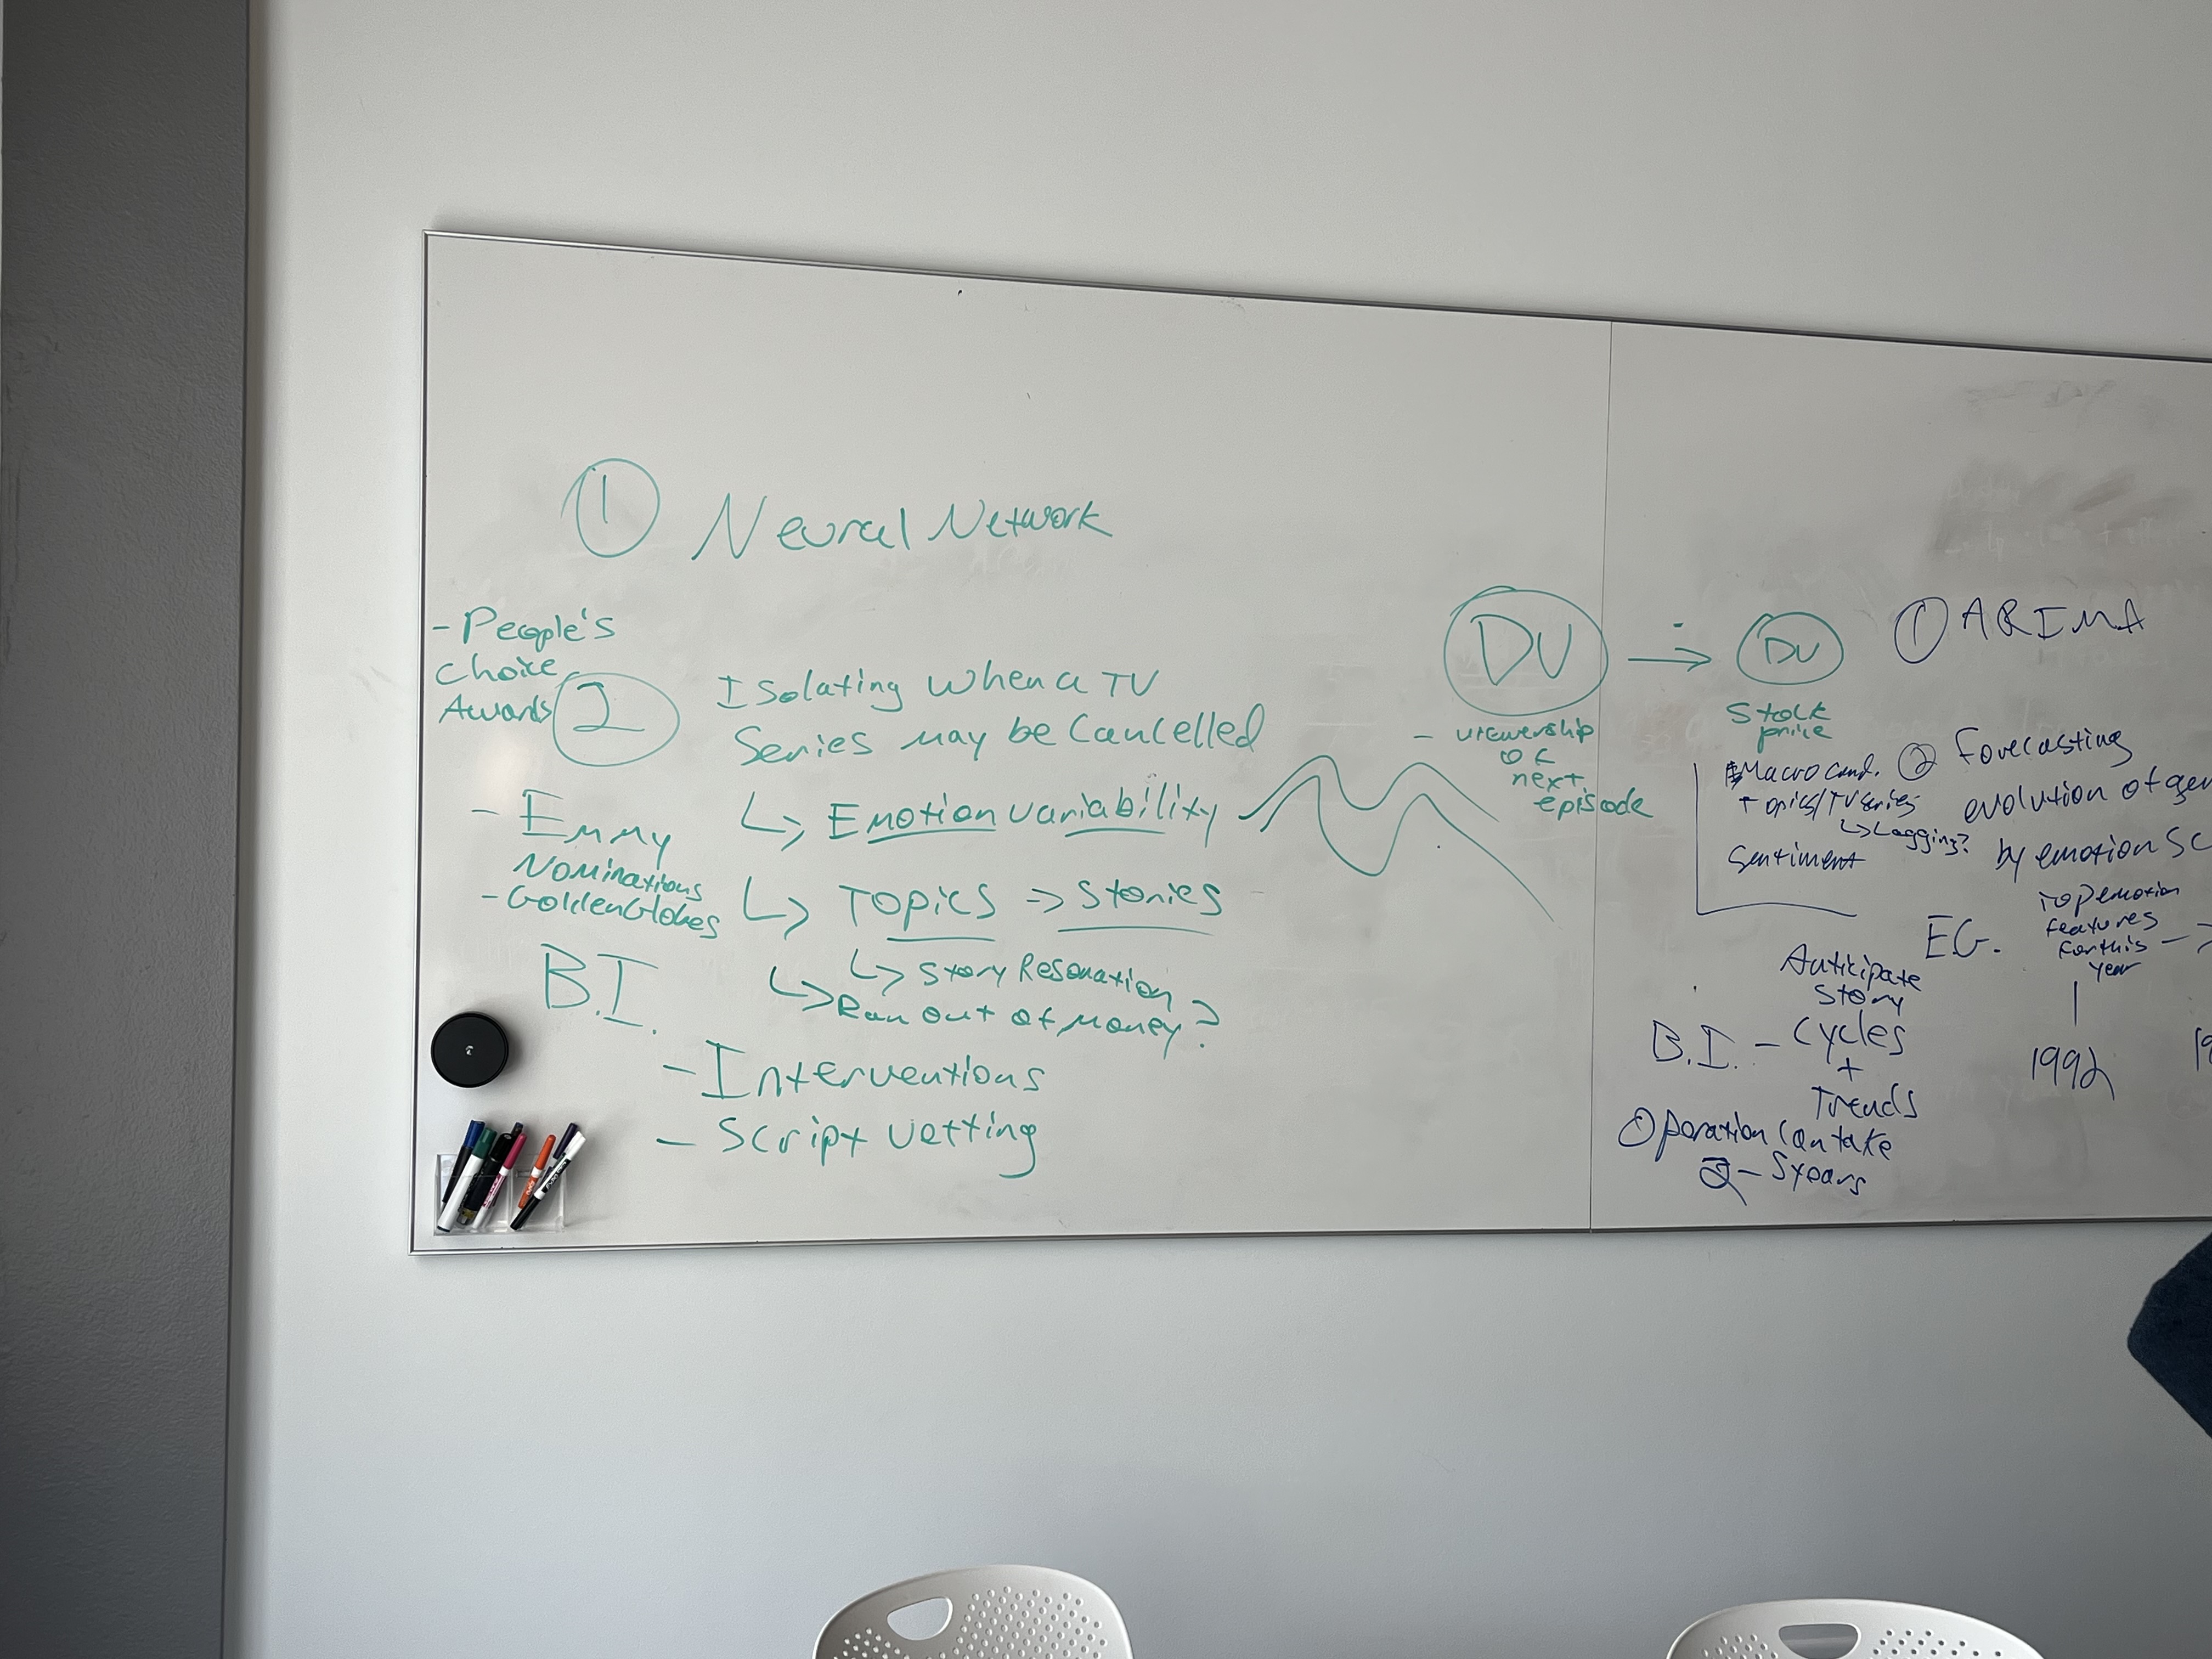 ① Neural Network
- People's
Choice
Awards
② Isolating when a TV
Series may be Cancelled
↳ Emotion variability
- Emmy
Nominations
- Golden Globes
↳ Topics => Stories
↳ Story Resonation
↳ Ran out of money?
B.I.
- Interventions
- Script vetting
DV → DV
- viewership
of
next
episode
Stock
price
Macro Cond.
Topics/TV series
↳ Lagging?
Sentiment
① ARIMA
② Forecasting
evolution of gen
by emotion sc
E.G.
Top emotion
features
for this
year
1992
B.I. - Anticipate
Story
Cycles
+
Trends
Operation can take
2-5 years